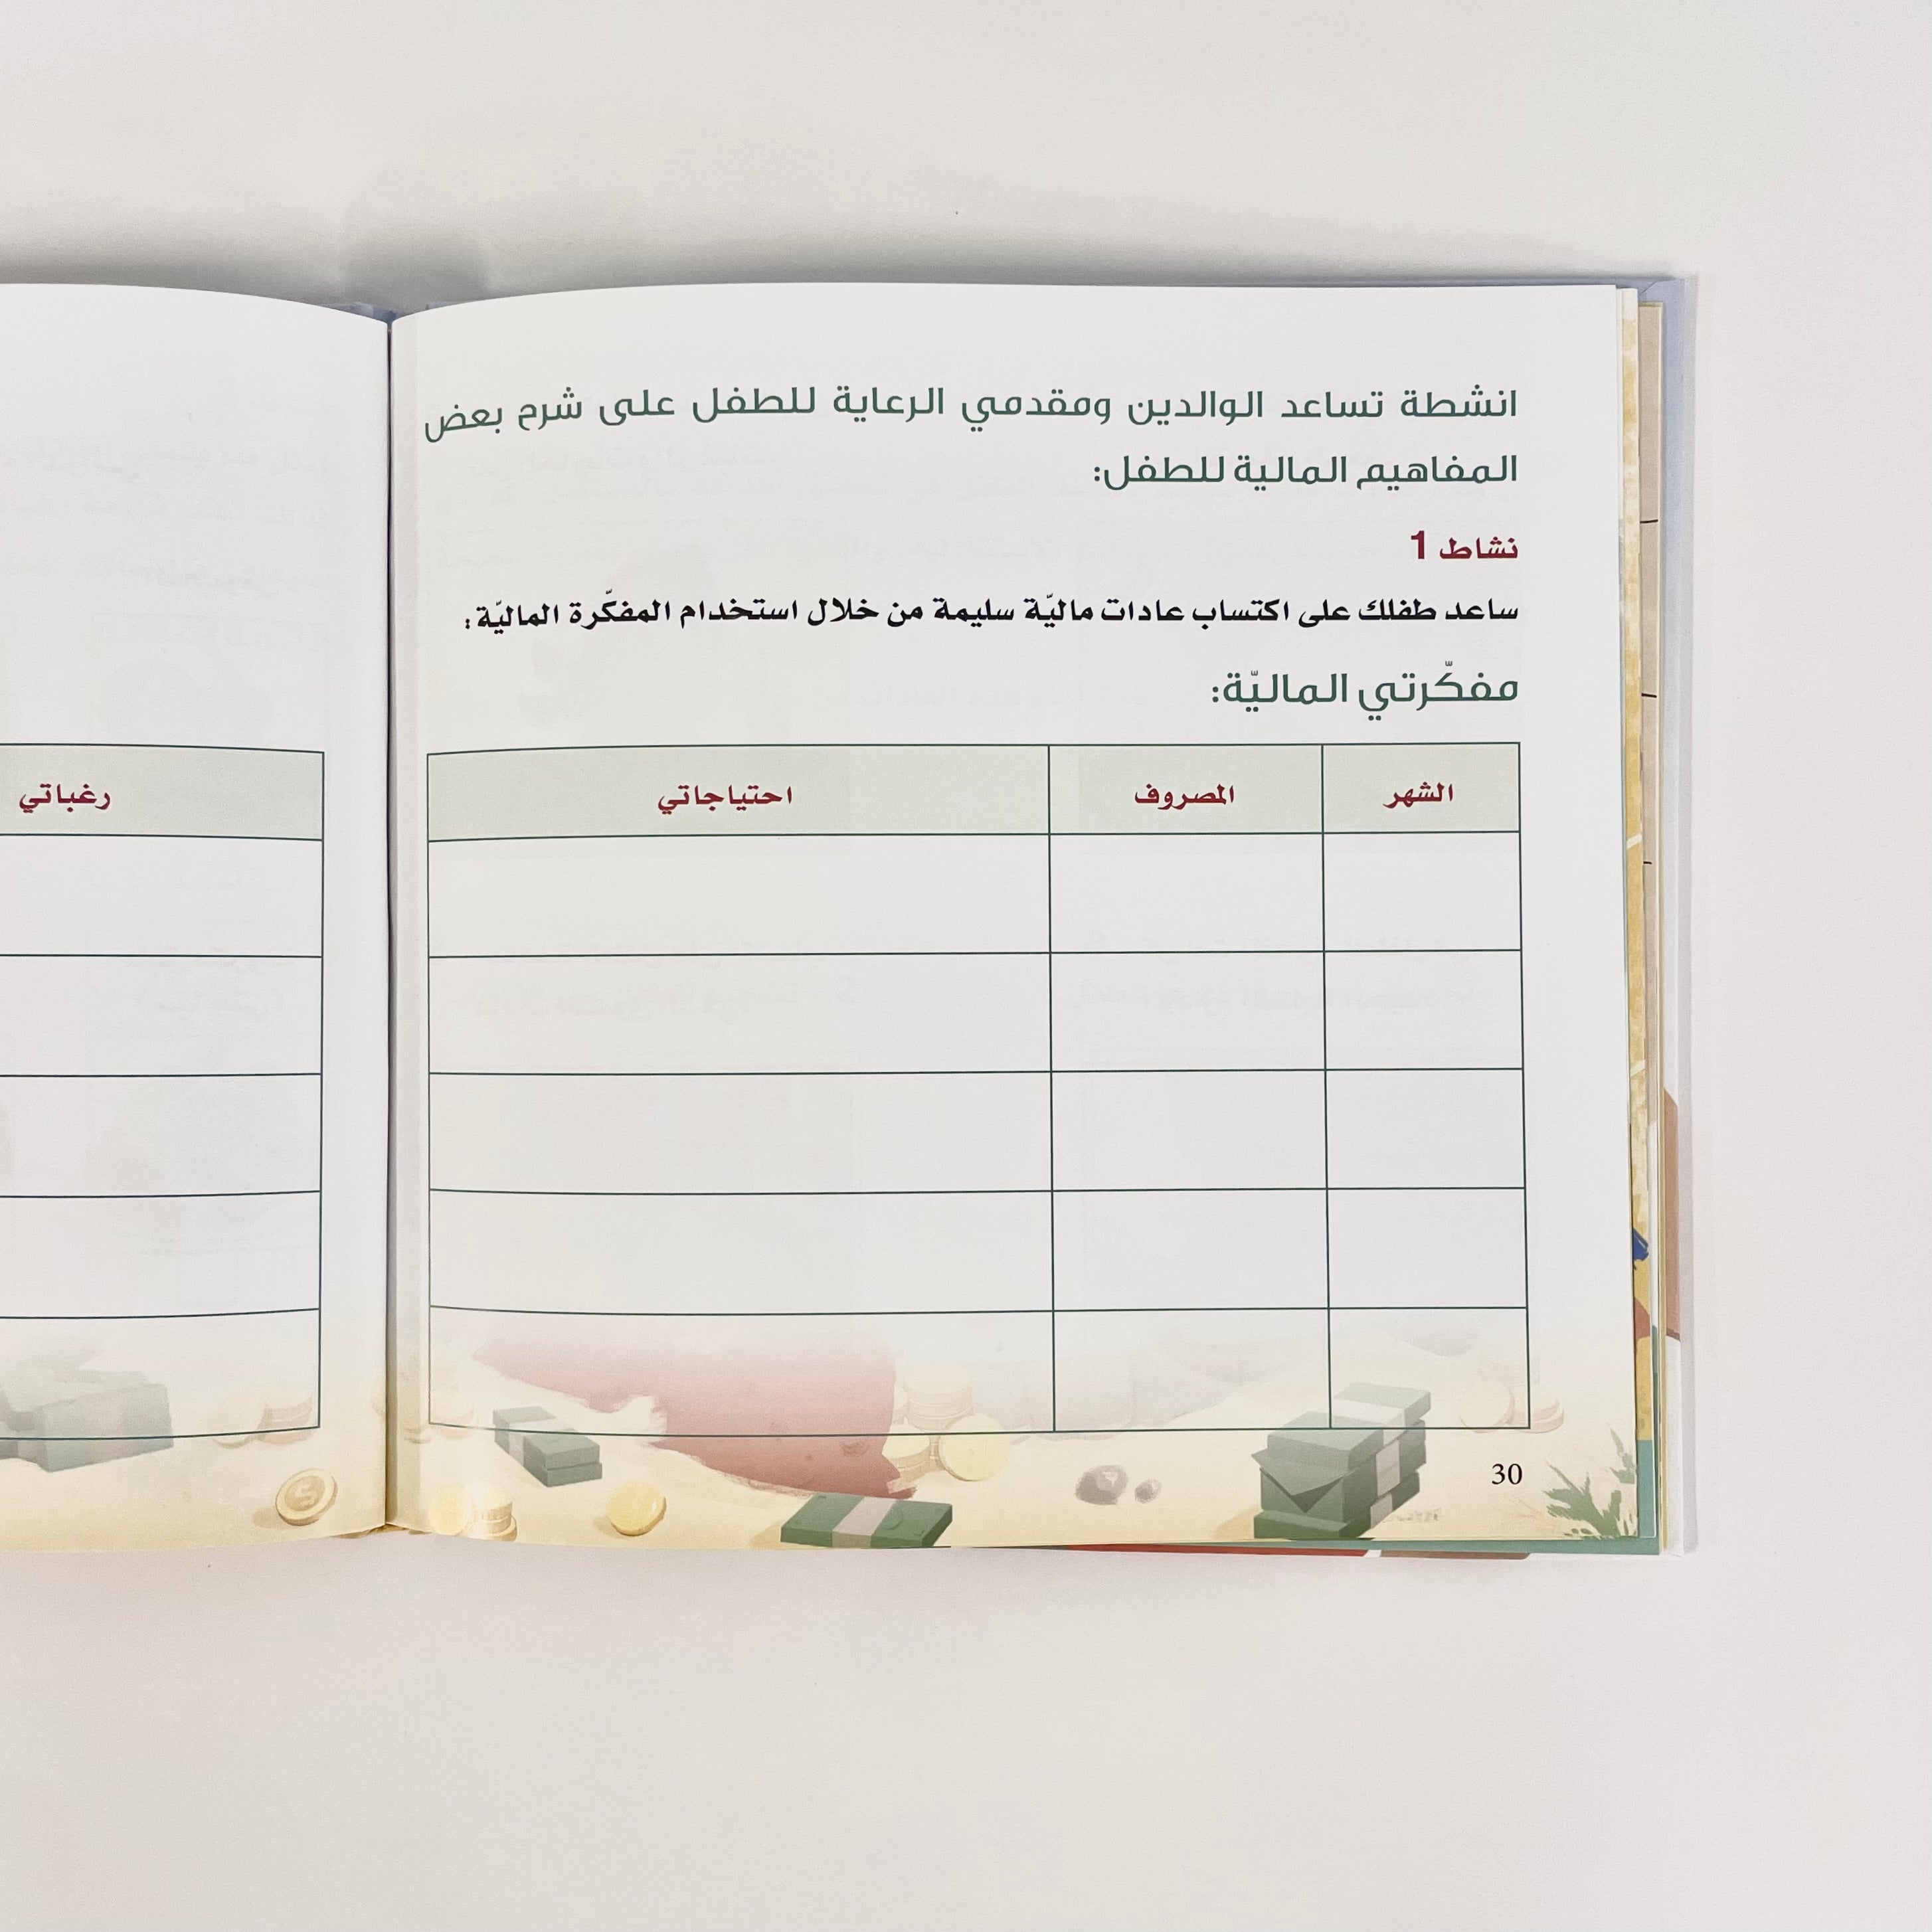 انشطة تساعد الوالدين ومقدمي الرعاية للطفل على شرح بعض
المفاهيم المالية للطفل:
نشاط 1
ساعد طفلك على اكتساب عادات ماليّة سليمة من خلال استخدام المفكّرة الماليّة:
مفكّرتي الماليّة:
الشهر المصروف احتياجاتي رغباتي
30